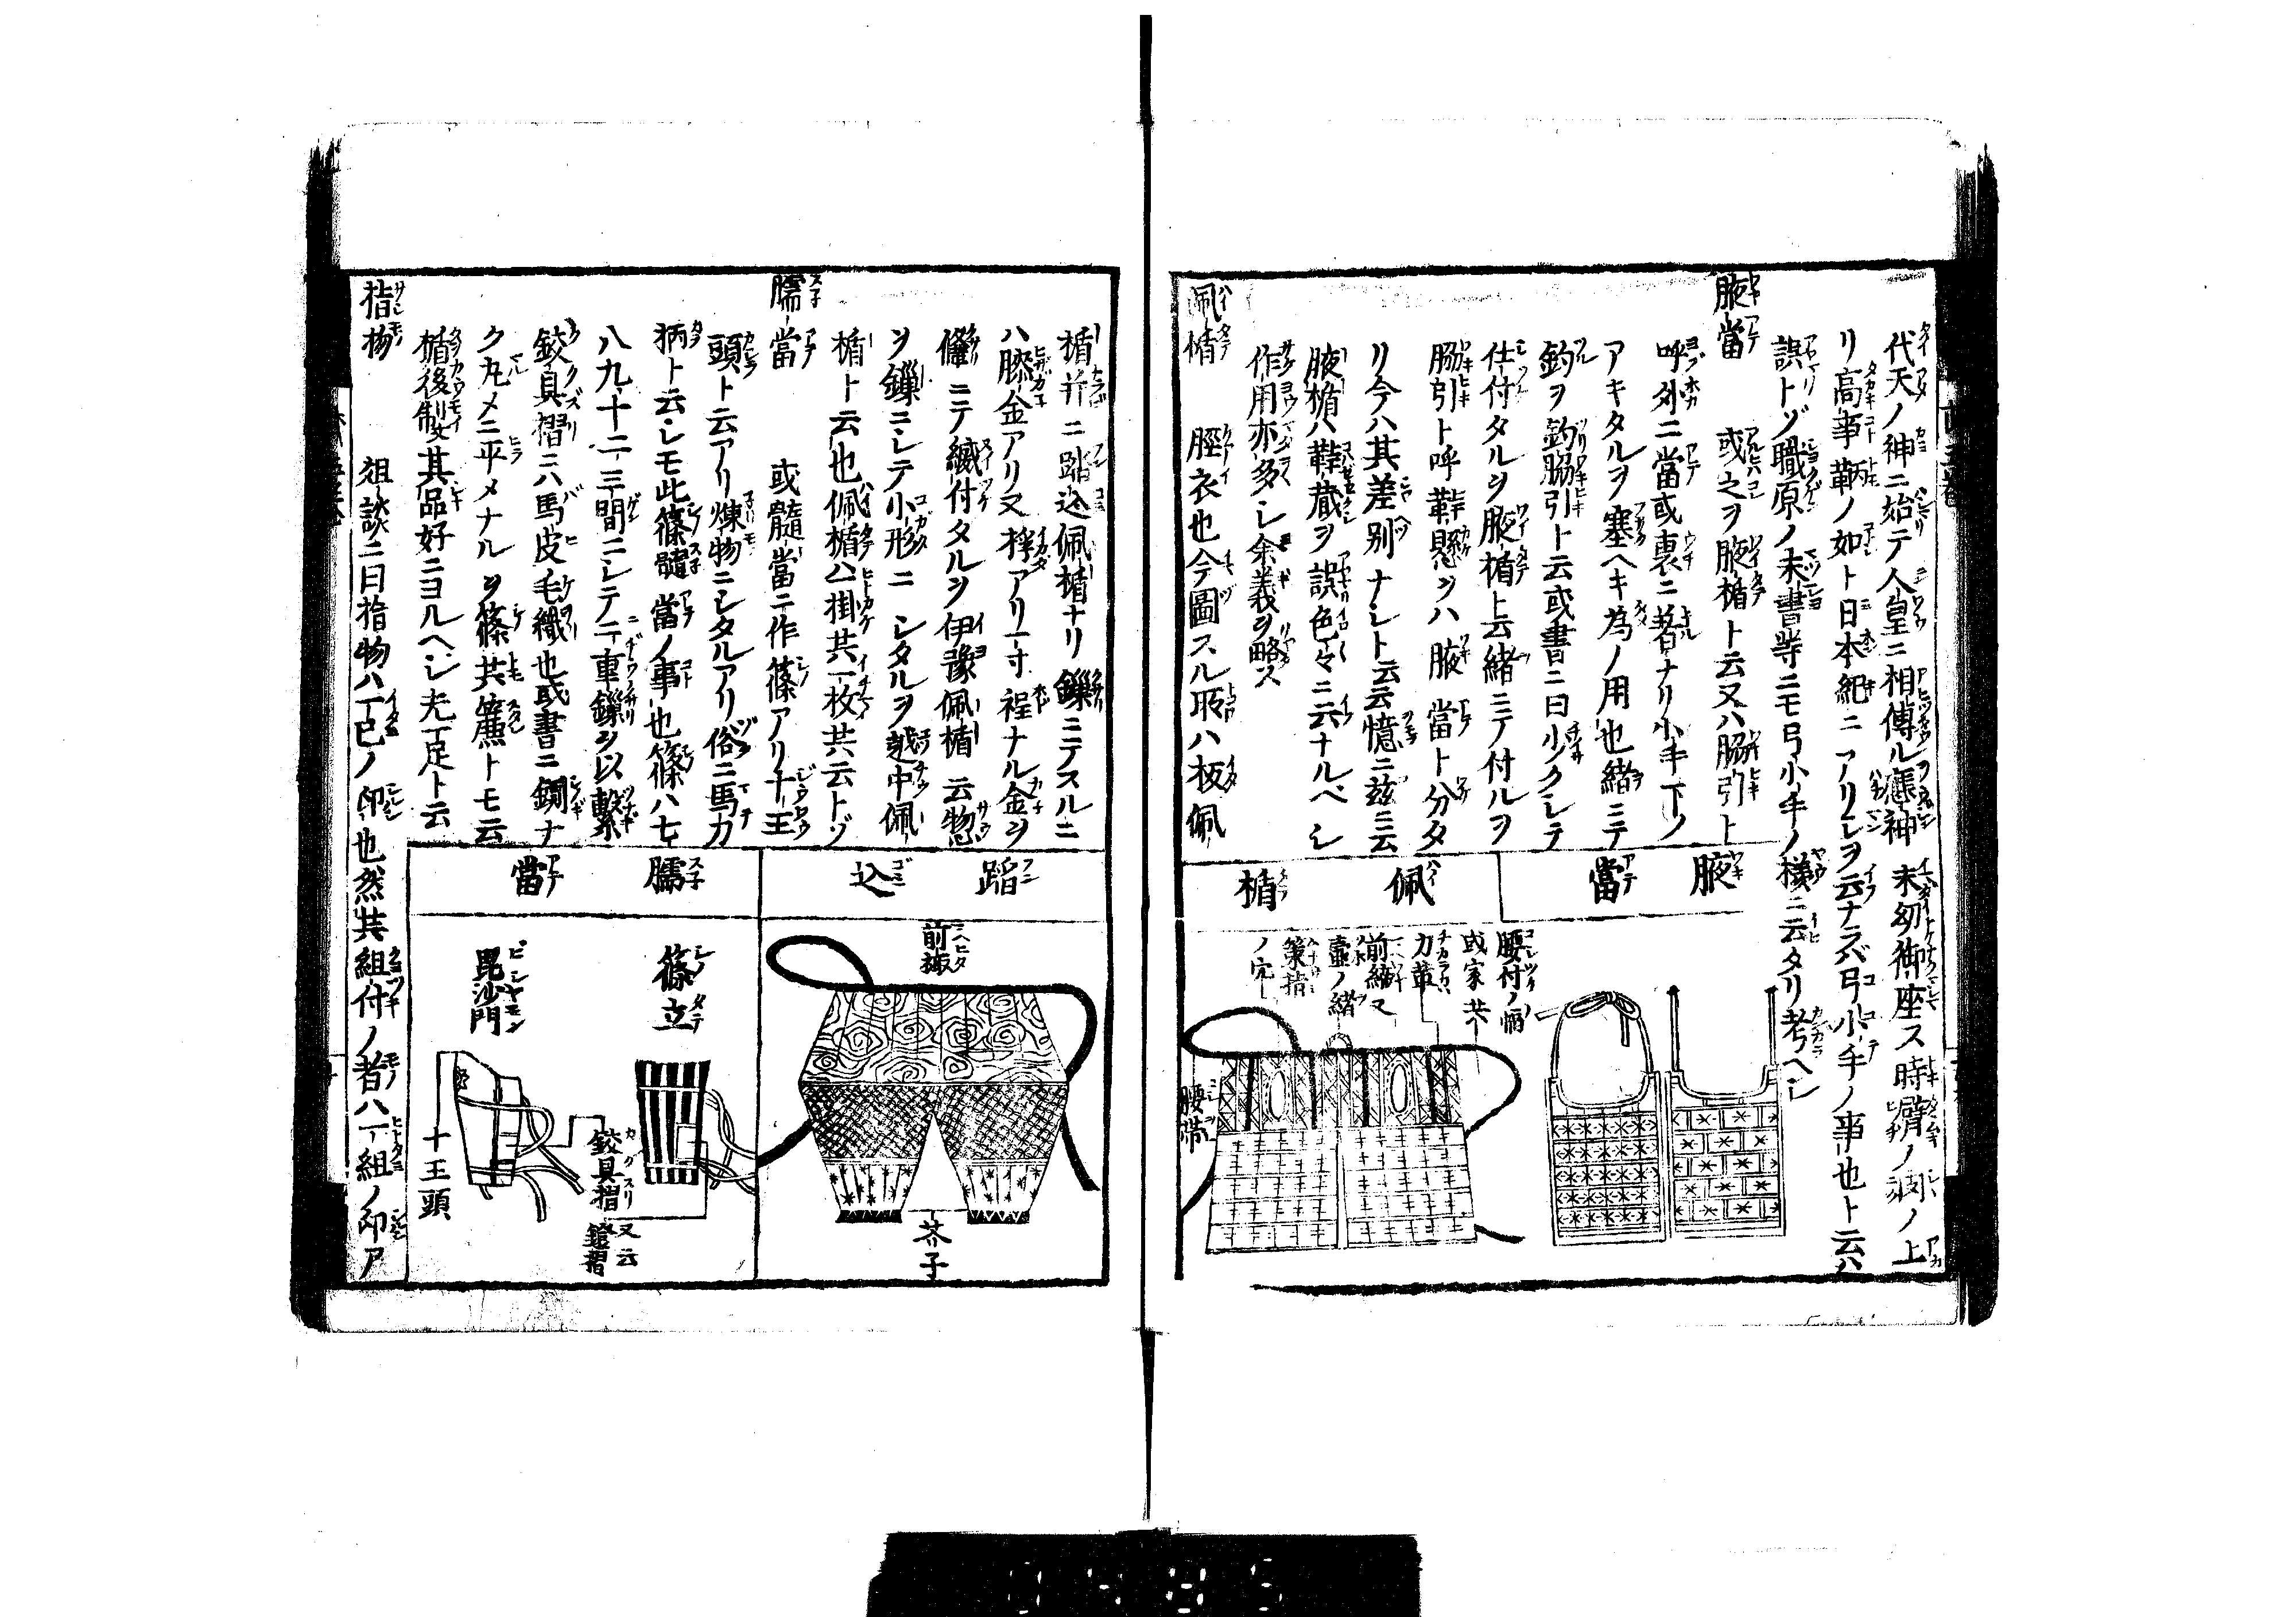 代天ノ神ニ始テ人皇ニ相傳ル應神未幼御座ス時臂ノ上
リ高事鞆ノ如ト日本紀ニアリレヲ云ナラバ弓小手ノ事也ト云ハ
誤トゾ職原ノ末書等ニモ弓小手ノ様ニ云タリ考ヘシ
腋當 或之ヲ腋楯ト云又ハ脇引ト
呼外ニ當或裏ニ著ナリ小手下ノ
アキタルヲ塞ヘキ為ノ用也緒ニテ
釣ヲ釣脇引ト云或書ニ曰少クシテ
仕付タルヲ腋楯上云緒ニテ付ルヲ
脇引ト呼鞐懸ヲハ腋當ト分タ
リ今ハ其差別ナシト云云憶ニ茲ニ云
腋楯ハ鞐蔵ヲ誤色々ニ云ナルベシ
作用亦多シ余義ヲ略ス
佩楯 脛衣也今圖スル所ハ板佩
腋當
佩楯
腰付ノ幅
或家共
力革
前緒又
壷ノ緒
ノ穴
腰帯
楯并ニ踏込佩楯ナリ鏁ニテスルニ
ハ膝金アリ又
アリ一寸程ナル金ヲ
ニテ縅付タルヲ伊豫佩楯云惣
ヲ鏁ニシテ小形ニシタルヲ越中佩
楯ト云也佩楯ハ掛共一枚共云トゾ
臑當 或髓當ニ作篠アリ十王
頭ト云アリ煉物ニシタルアリ俗ニ馬力
柄ト云シモ此篠髓當ノ事也篠ハ七
八九十二三間ニシテ二重鏁ヲ以繋
鉸具摺ニハ馬皮毛織也或書ニ鎬ナ
ク丸メニ平メナルヲ篠共簾トモ云
楯後製其品好ニヨルヘシ先下足ト云
指物 爼談ニ曰指物ハ一己ノ印也然共組付ノ者ハ一組ノ印ア
踏込
前板
芥子
臑當
篠立
毘沙門
鉸具摺又云
鐙摺
十王頭